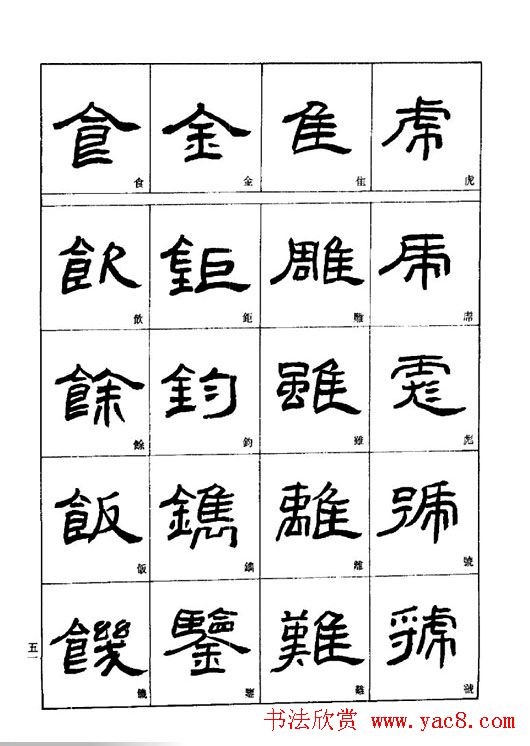 虎 虎
彪 彪
號 號
虢 虢
隹 隹
雕 雕
雖 雖
離 離
難 難
金 金
鉅 鉅
鈞 鈞
鐫 鐫
鑒 鑒
食 食
飲 飲
餘 餘
飯 飯
饑 饑
五一
书法欣赏 www.yac8.com